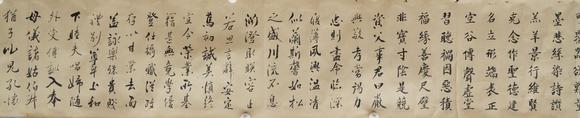 墨悲絲染詩讚
羔羊景行維賢
克念作聖德建
名立形端表正
空谷傳聲虛堂
習聽禍因惡積
福緣善慶尺璧
非寶寸陰是競
資父事君曰嚴
與敬孝當竭力
忠則盡命臨深
履薄夙興溫凊
似蘭斯馨如松
之盛川流不息
淵澄取映容止
若思言辭安定
篤初誠美慎終
宜令榮業所基
籍甚無竟學優
登仕攝職從政
存以甘棠去而
益詠樂殊貴賤
禮別尊卑上和
下睦夫唱婦隨
外受傅訓入奉
母儀諸姑伯叔
猶子比兒孔懷